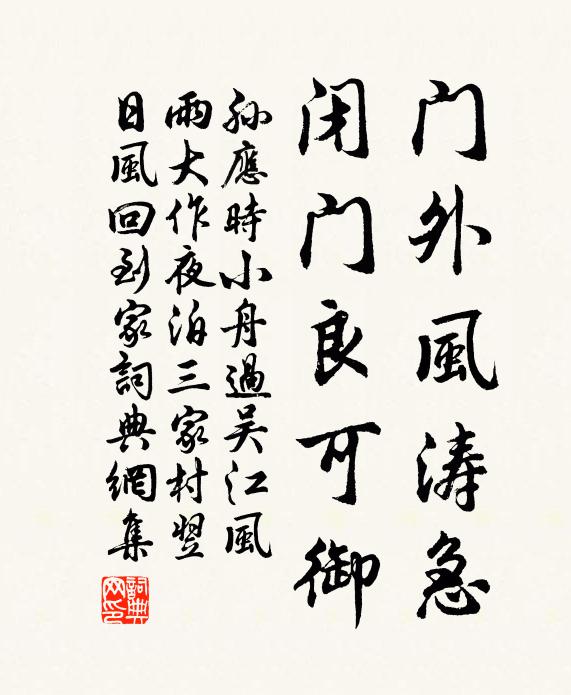 门外風涛急
闭门良可御
孙應時小舟過吴江風
雨大作夜泊三家村翌
日風回到家詞典網集
詞典网印